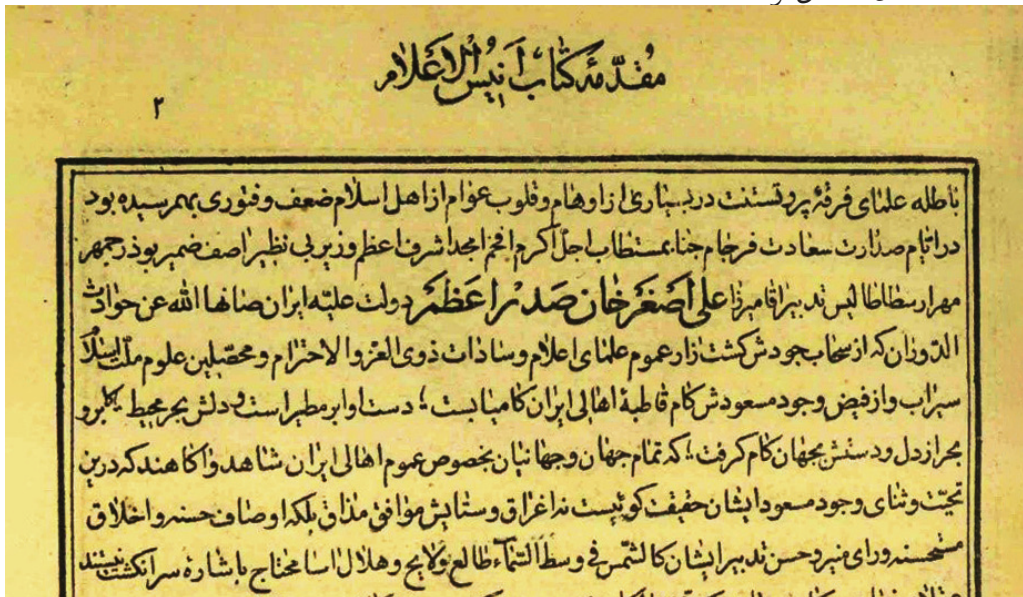 مقدّمهٔ کتاب انیس الاعلام
۲
باطله علمای فرقهٔ پروتستنت در بسیاری از اوهام و قلوب عوام از اهل اسلام ضعف و فتوری بهمرسیده بود
در ایّام صدارت سعادت فرجام جنابمستطاب اجلّ اکرم افخم امجد اشرف اعظم وزیر بی نظیر اصف ضمیر بوذرجمهر
مهر ارسطاطالیس تدبیر اقا میرزا علی اصغر خان صدر اعظم دولت علیّه ایران صانها الله عن حوادث
الدّوران که از سحاب جودش کشت زار عموم علمای اعلام و سادات ذوی العزّ و الاحترام و محصّلین علوم ملّت اسلام
سیراب و از فیض وجود مسعودش کام قاطبهٔ اهالی ایران کامیابست ؛ دست او ابر مطیر است و دلش بحر محیط
بحر از دل و دستش بجهان کام کرفت ؛ که تمام جهان و جهانیان بخصوص عموم اهالی ایران شاهد و اکاهند که درین
تحیّت و ثنای وجود مسعود ایشان حقیقت کوئیست نه اغراق و ستایش موافق مذاق بلکه اوصاف حسنه و اخلاق
مستحسنه و رای منیر و حسن تدبیر ایشان کالشّمس فی وسط السّماء طالع و لایح و هلال اسا محتاج باشاره سر انکشت نیستند